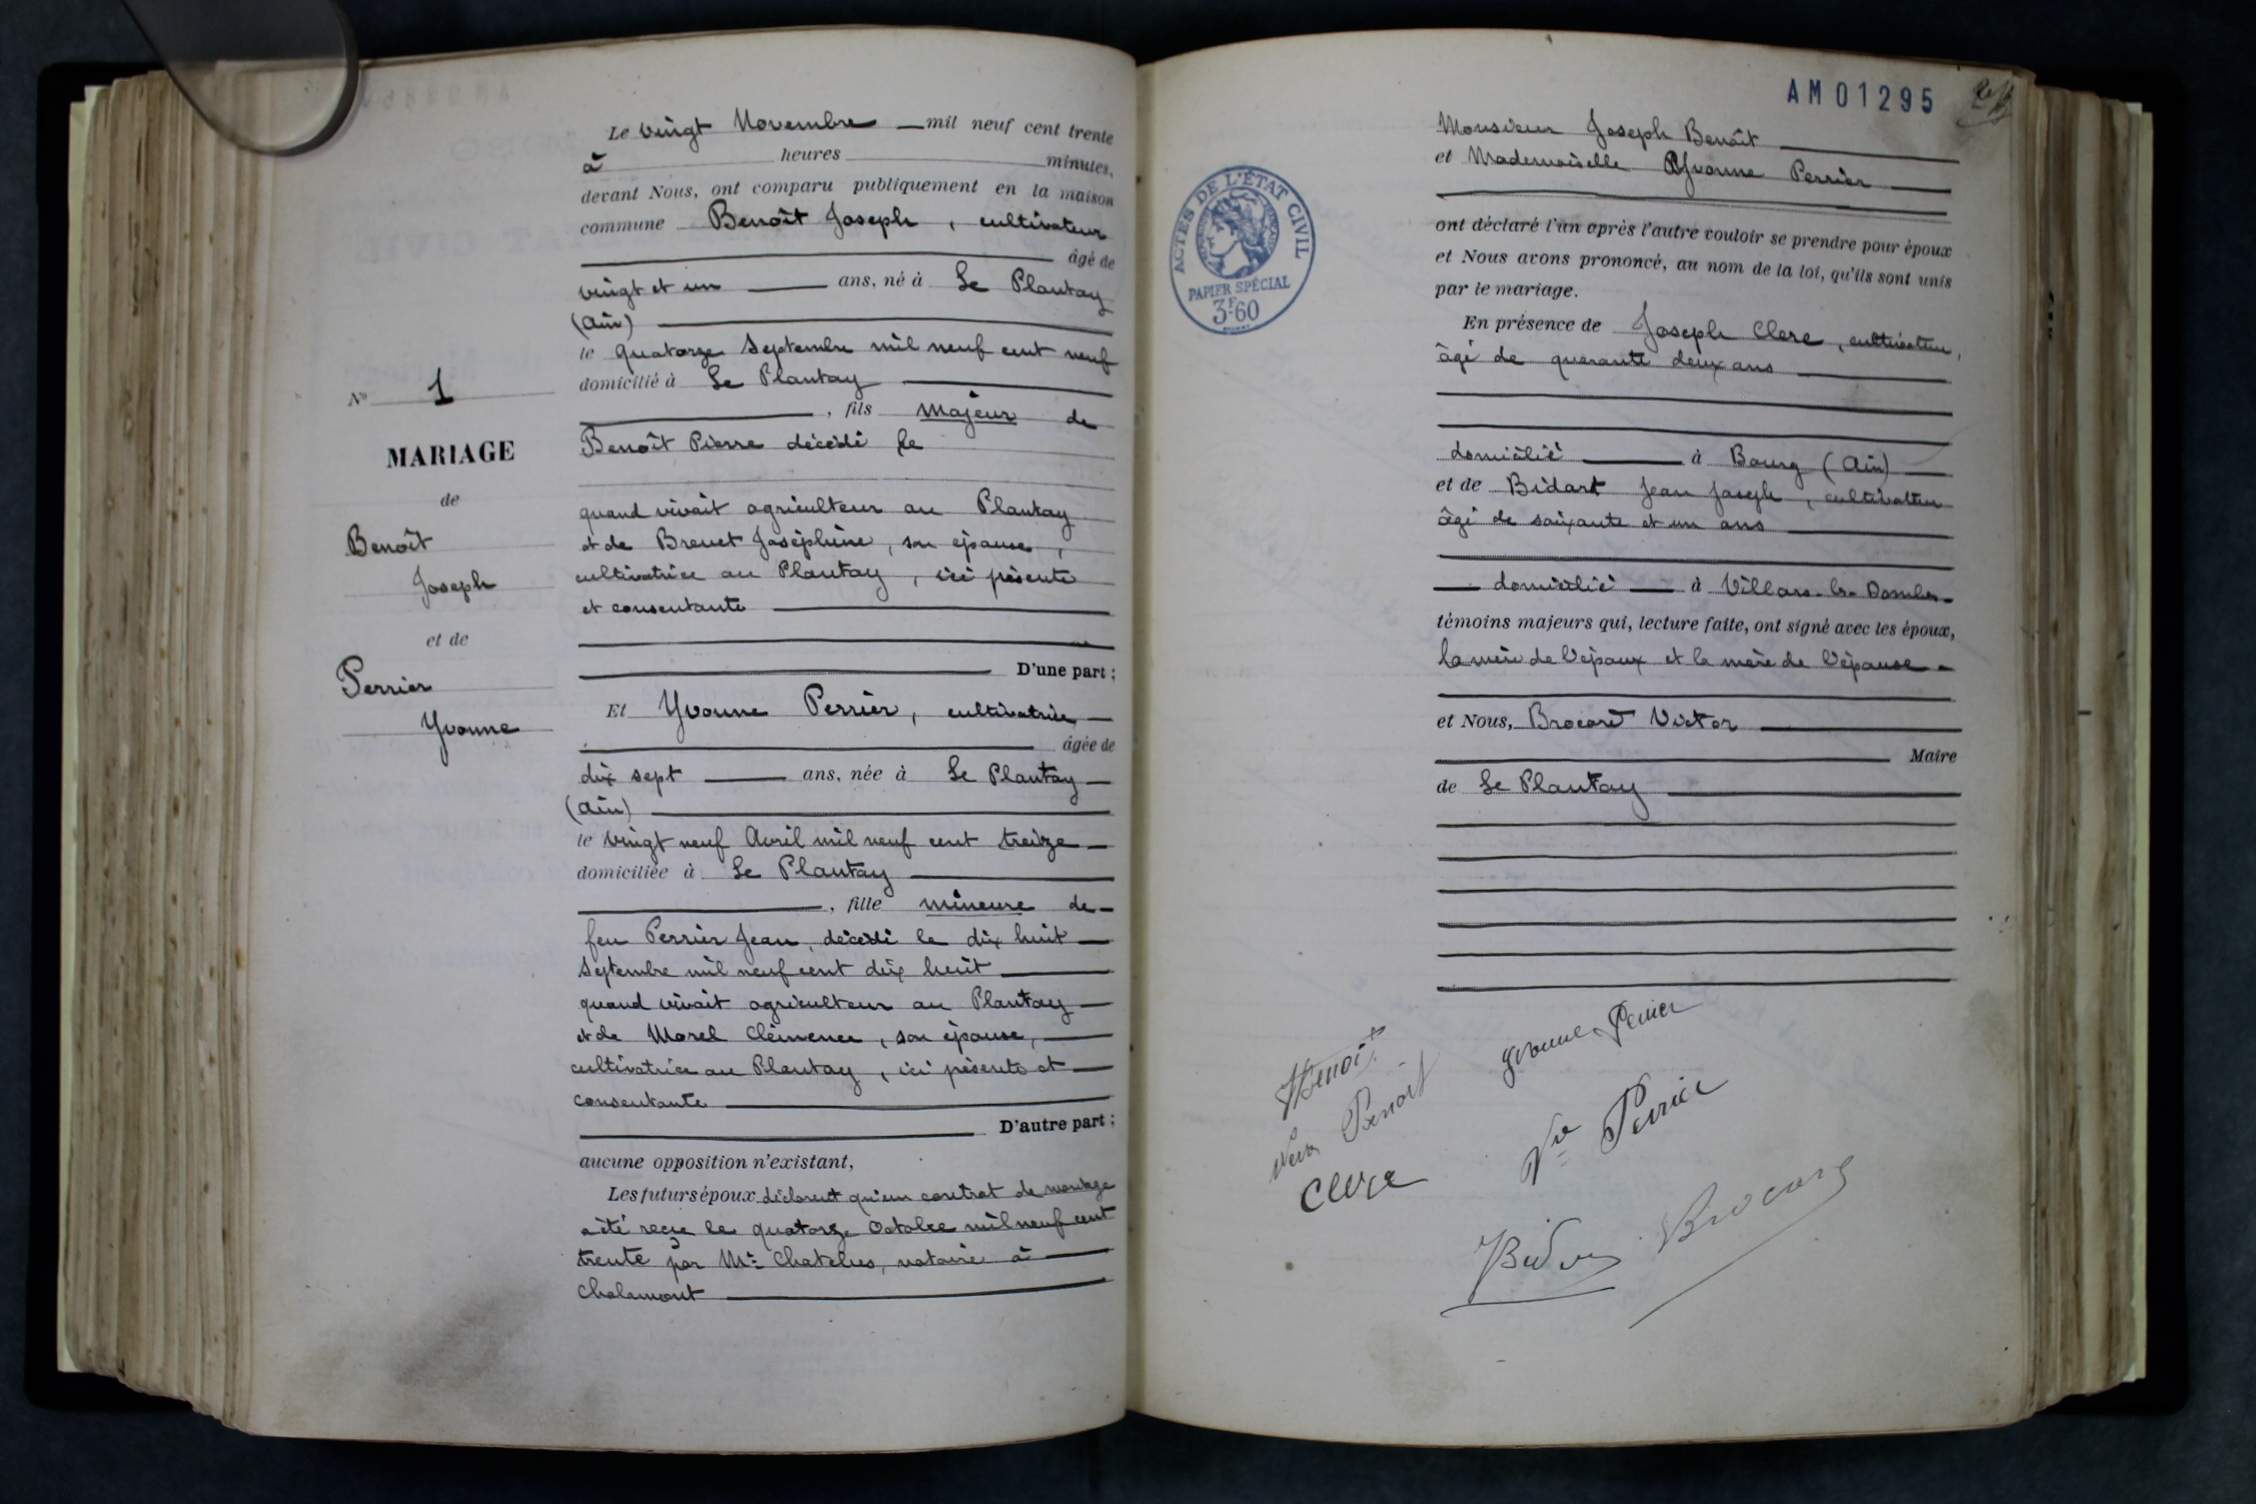 Le vingt Novembre mil neuf cent trente
à heures minutes,
devant Nous, ont comparu publiquement en la maison
commune Benoît Joseph, cultivateur
âgé de
vingt et un ans, né à Le Plantay
(Ain)
le quatorze Septembre mil neuf cent neuf
domicilié à Le Plantay
, fils Majeur de
Benoît Pierre décédé le
quand vivait agriculteur au Plantay
et de Brevet Joséphine, son épouse,
cultivatrice au Plantay, ici présente
et consentante
D'une part ;
Et Yvonne Perrier, cultivatrice
âgée de
dix sept ans, née à Le Plantay
(Ain)
le vingt neuf Avril mil neuf cent treize
domiciliée à Le Plantay
, fille mineure de
feu Perrier Jean, décédé le dix huit
Septembre mil neuf cent dix huit
quand vivait agriculteur au Plantay
et de Morel Clémence, son épouse,
cultivatrice au Plantay, ici présente et
consentante
D'autre part ;
aucune opposition n'existant,
Les futurs époux déclarent qu'un contrat de mariage
a été reçu le quatorze Octobre mil neuf cent
trente par Me Chatelus, notaire à
Chalamont
N° 1
MARIAGE
de
Benoît
Joseph
et de
Perrier
Yvonne
AM01295
Monsieur Joseph Benoît
et Mademoiselle Yvonne Perrier
ACTES DE L'ÉTAT CIVIL
PAPIER SPÉCIAL
3F60
ont déclaré l'un après l'autre vouloir se prendre pour époux
et Nous avons prononcé, au nom de la loi, qu'ils sont unis
par le mariage.
En présence de Joseph Clerc, cultivateur,
âgé de quarante deux ans
domicilié à Bourg (Ain)
et de Bidart Jean Joseph, cultivateur
âgé de soixante et un ans
domicilié à Villars-les-Dombes
témoins majeurs qui, lecture faite, ont signé avec les époux,
la mère de l'époux et la mère de l'épouse
et Nous, Brocard Victor
Maire
de Le Plantay
Yvonne Perrier
Benoit
Veuve Benoit
Vve Perrier
Clerc
Brocard